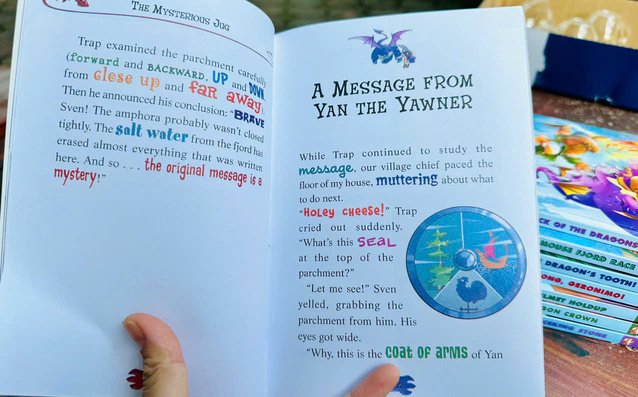 The Mysterious Jug
Trap examined the parchment carefully
(forward and BACKWARD, UP and DOWN,
from close up and far away).
Then he announced his conclusion: "BRAVE
Sven! The amphora probably wasn't closed
tightly. The salt water from the fjord has
erased almost everything that was written
here. And so . . . the original message is a
mystery!"
A Message from
Yan the Yawner
While Trap continued to study the
message, our village chief paced the
floor of my house, muttering about what
to do next.
"Holey cheese!" Trap
cried out suddenly.
"What's this SEAL
at the top of the
parchment?"
"Let me see!" Sven
yelled, grabbing the
parchment from him. His
eyes got wide.
"Why, this is the coat of arms of Yan
CK OF THE DRAGONS
MOUSE FJORD RACE
DRAGON'S TOOTH!
ONG, GERONIMO!
LMET HOLDUP
ON CROWN